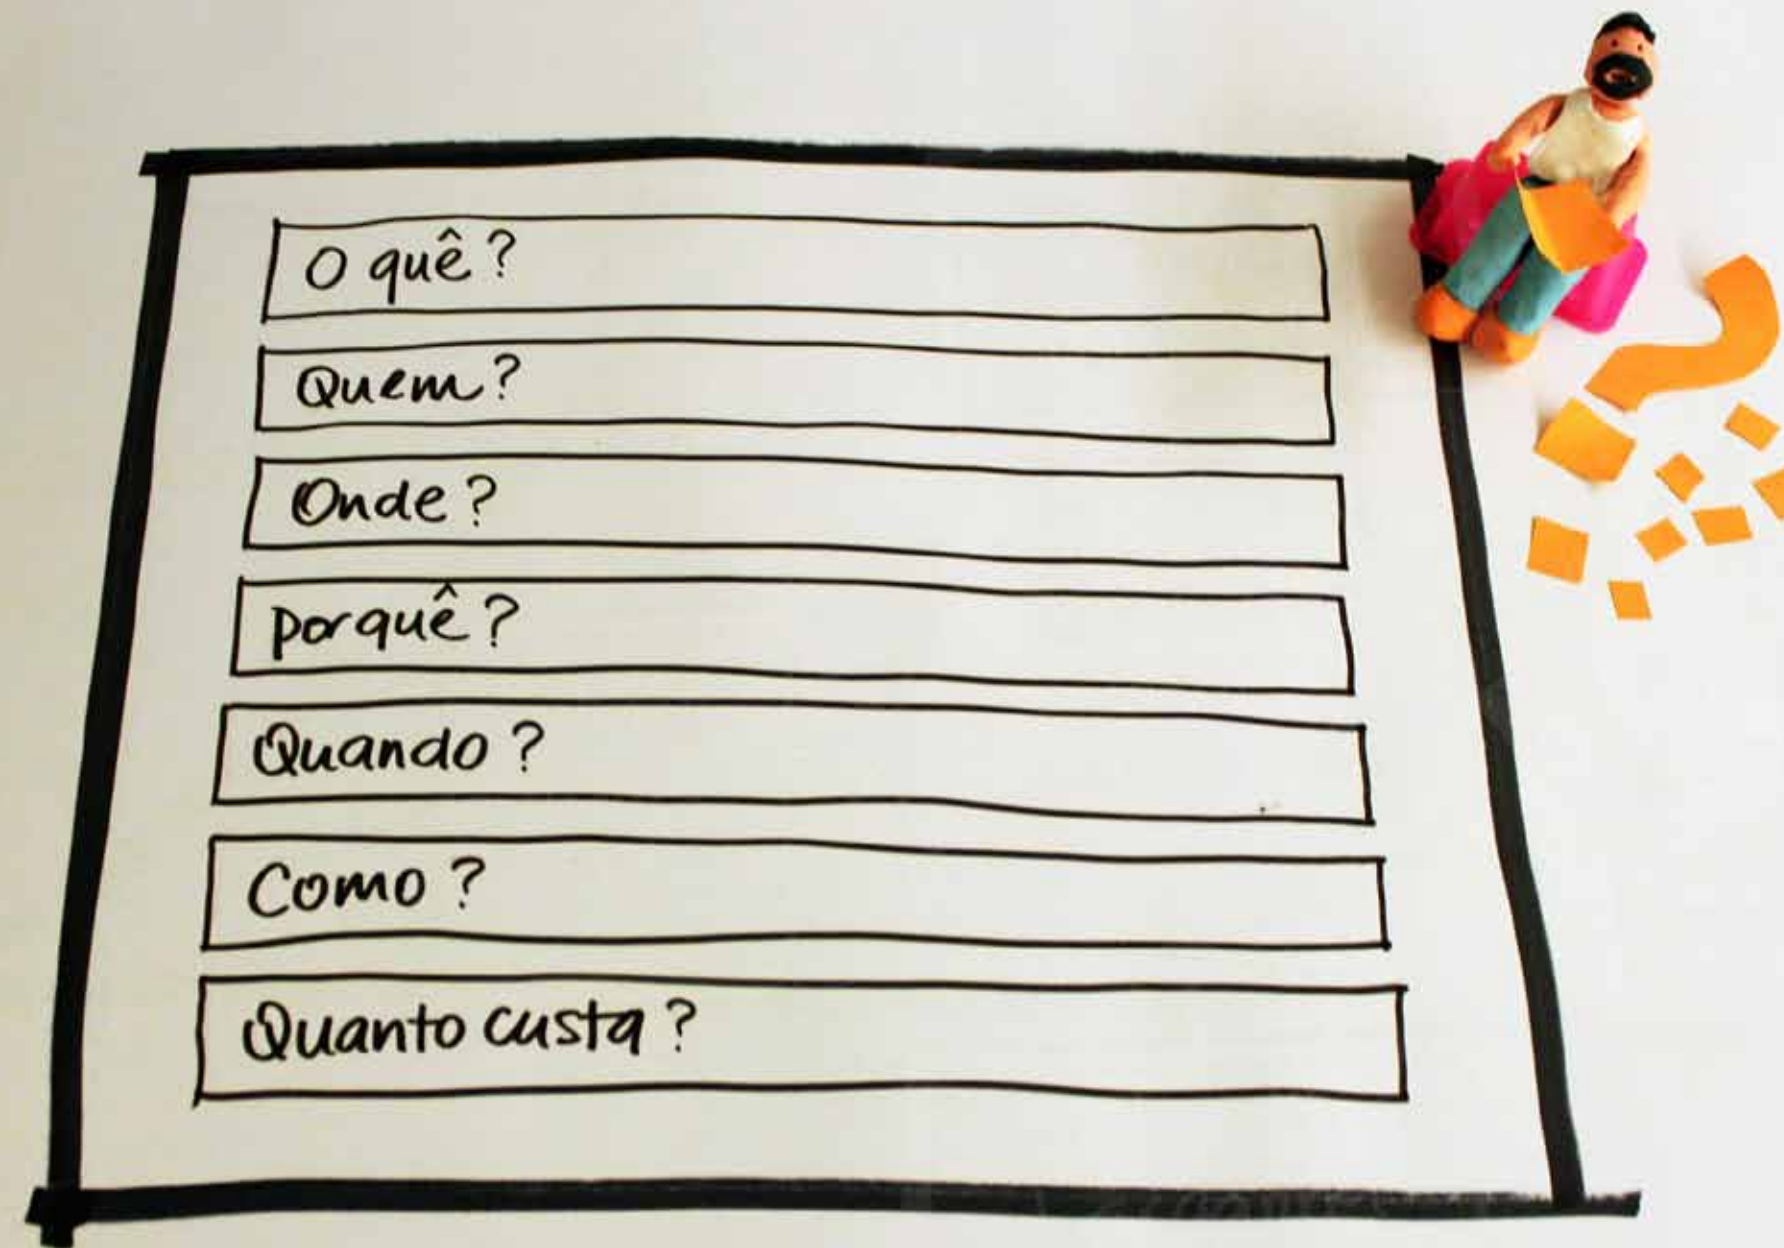 O quê?
Quem?
Onde?
porquê?
Quando?
Como?
Quanto custa?